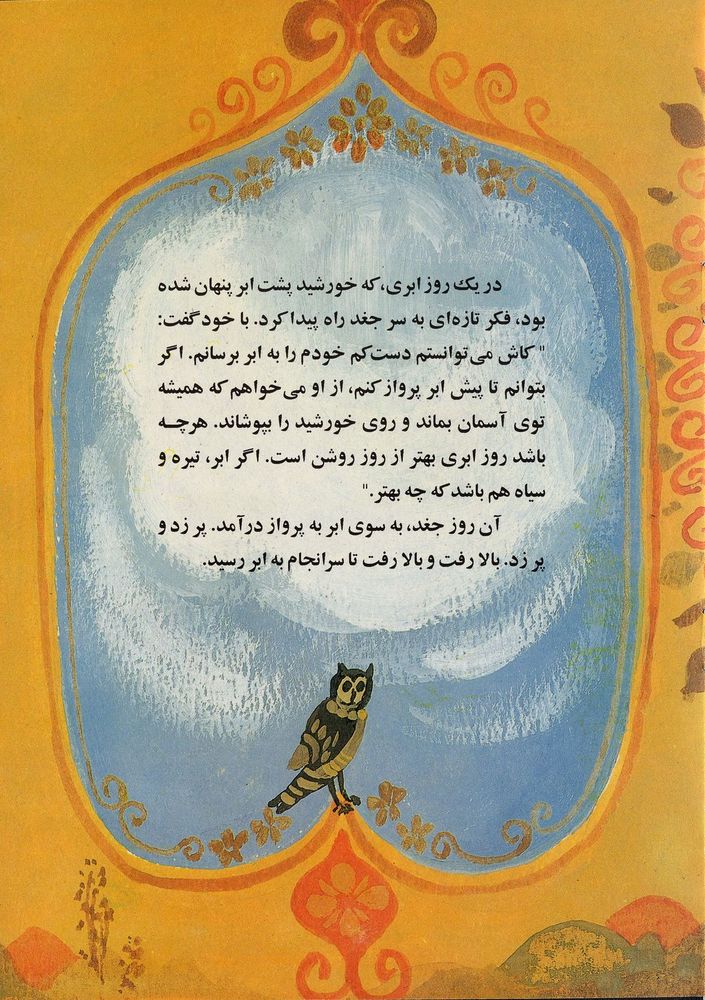 در یک روز ابری،که خورشید پشت ابر پنهان شده
بود، فکر تازه‌ای به سر جغد راه پیدا کرد. با خود گفت:
" کاش می‌توانستم دست‌کم خودم را به ابر برسانم. اگر
بتوانم تا پیش ابر پرواز کنم، از او می‌خواهم که همیشه
توی آسمان بماند و روی خورشید را بپوشاند. هرچه
باشد روز ابری بهتر از روز روشن است. اگر ابر، تیره و
سیاه هم باشد که چه بهتر."
آن روز جغد، به سوی ابر به پرواز درآمد. پر زد و
پر زد. بالا رفت و بالا رفت تا سرانجام به ابر رسید.